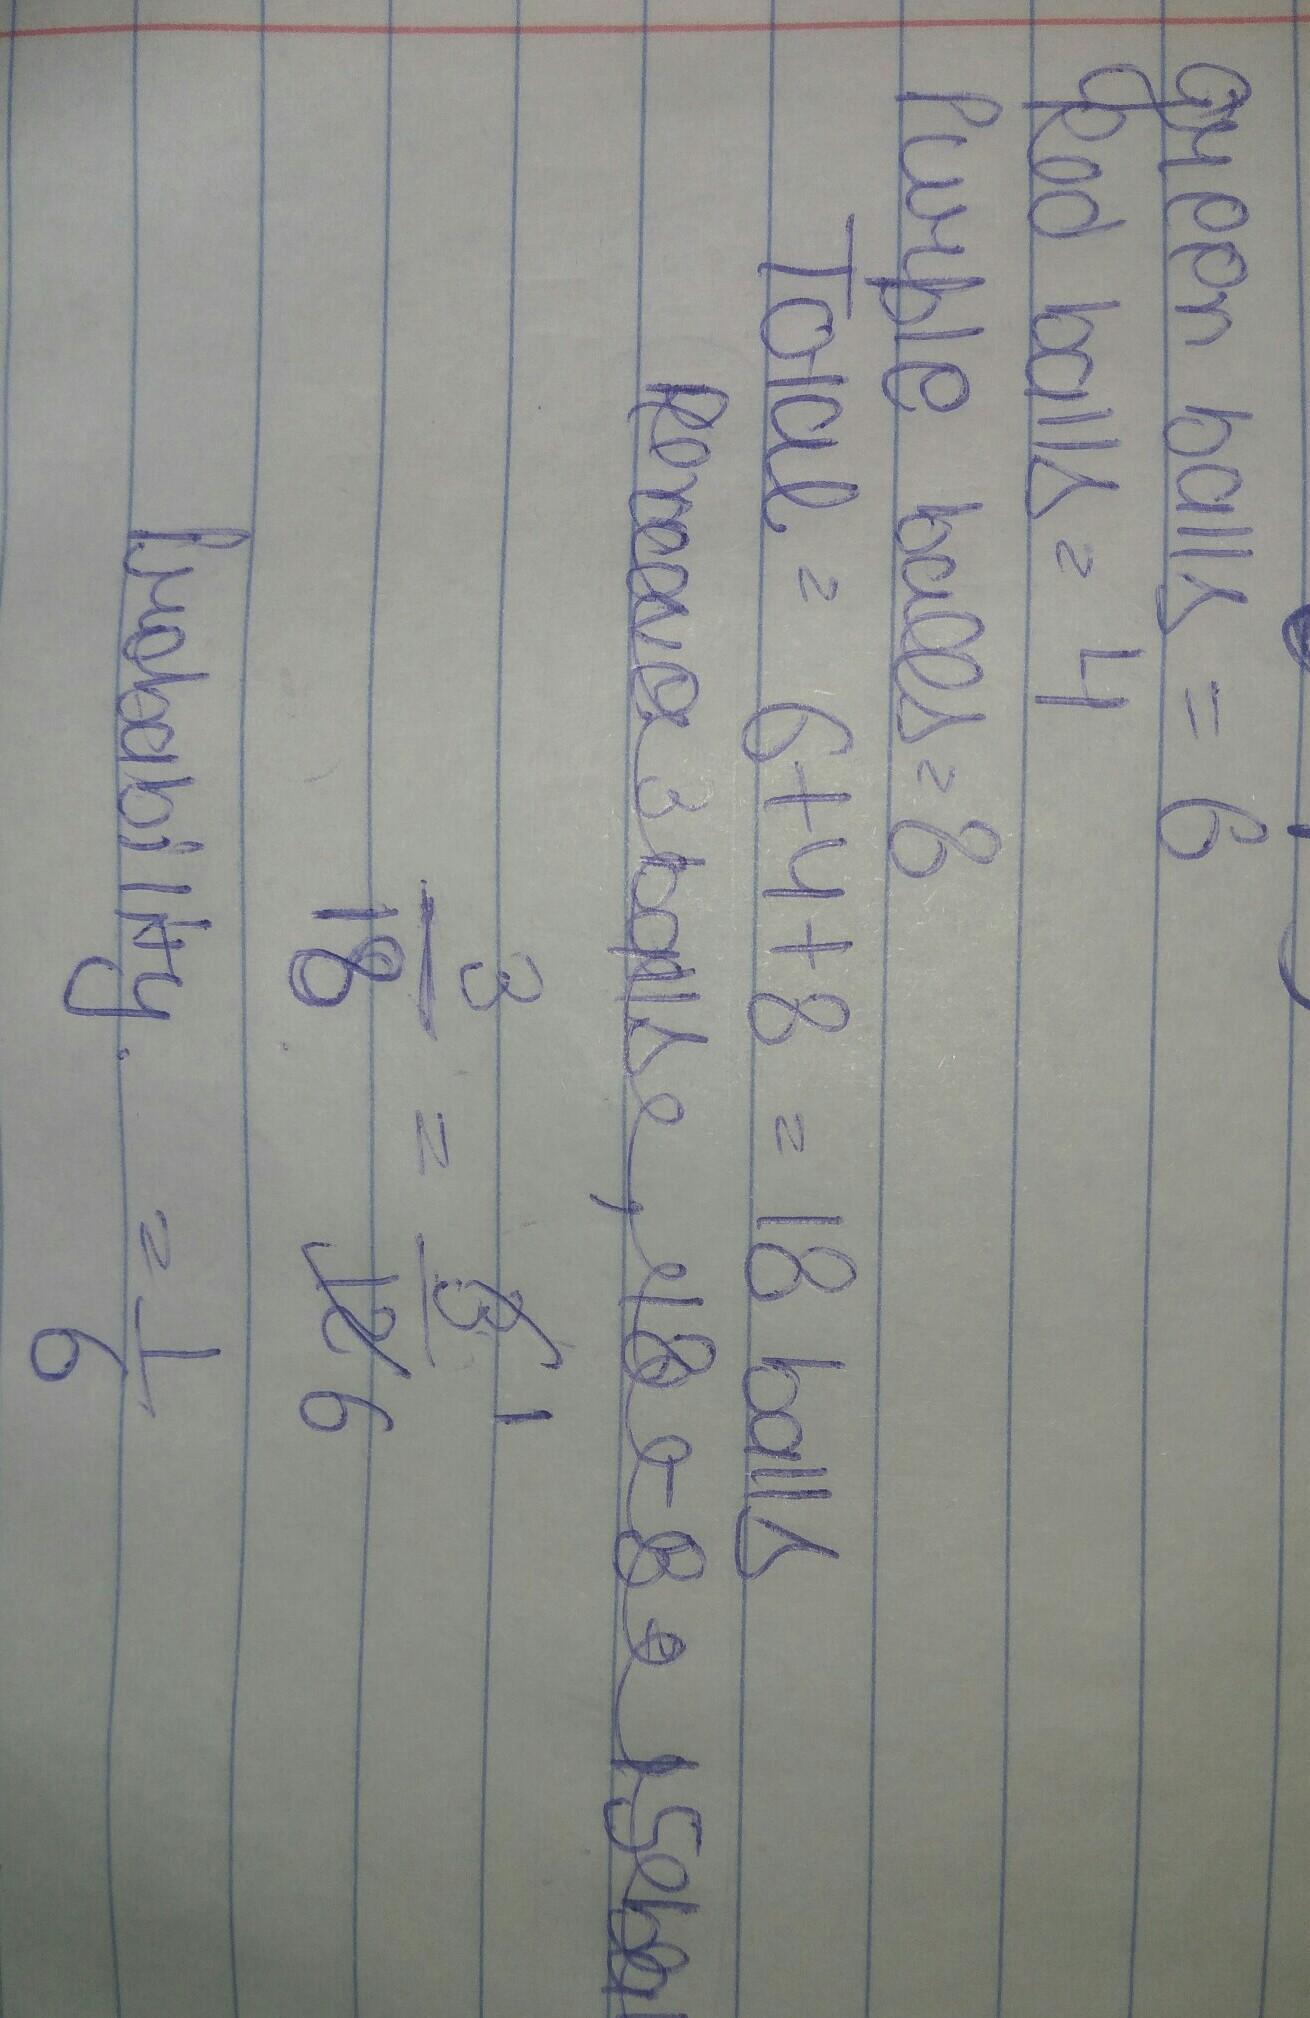 Green balls = 6
Red balls = 4
Purple balls = 8
Total = 6+4+8 = 18 balls
Remove 3 balls, 18 - 3 = 15
3/18 = 3/18 1 6
Probability. = 1/6